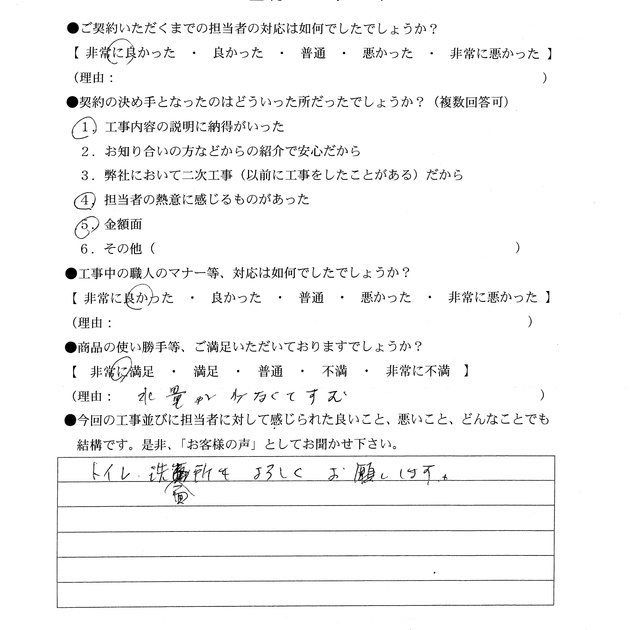 ●ご契約いただくまでの担当者の対応は如何でしたでしょうか？
【 非常に良かった ・ 良かった ・ 普通 ・ 悪かった ・ 非常に悪かった 】
（理由： ）
●契約の決め手となったのはどういった所だったでしょうか？（複数回答可）
1．工事内容の説明に納得がいった
2．お知り合いの方などからの紹介で安心だから
3．弊社において二次工事（以前に工事をしたことがある）だから
4．担当者の熱意に感じるものがあった
5．金額面
6．その他（ ）
●工事中の職人のマナー等、対応は如何でしたでしょうか？
【 非常に良かった ・ 良かった ・ 普通 ・ 悪かった ・ 非常に悪かった 】
（理由： ）
●商品の使い勝手等、ご満足いただいておりますでしょうか？
【 非常に満足 ・ 満足 ・ 普通 ・ 不満 ・ 非常に不満 】
（理由： 水量が少なくてすむ ）
●今回の工事並びに担当者に対して感じられた良いこと、悪いこと、どんなことでも
結構です。是非、「お客様の声」としてお聞かせ下さい。
トイレ、洗面所も よろしく お願いします。